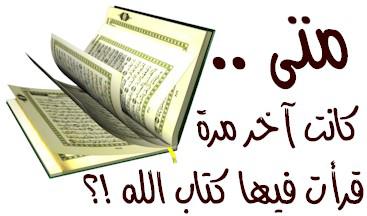 متى ..
كانت آخر مرة
قرأت فيها كتاب الله !؟